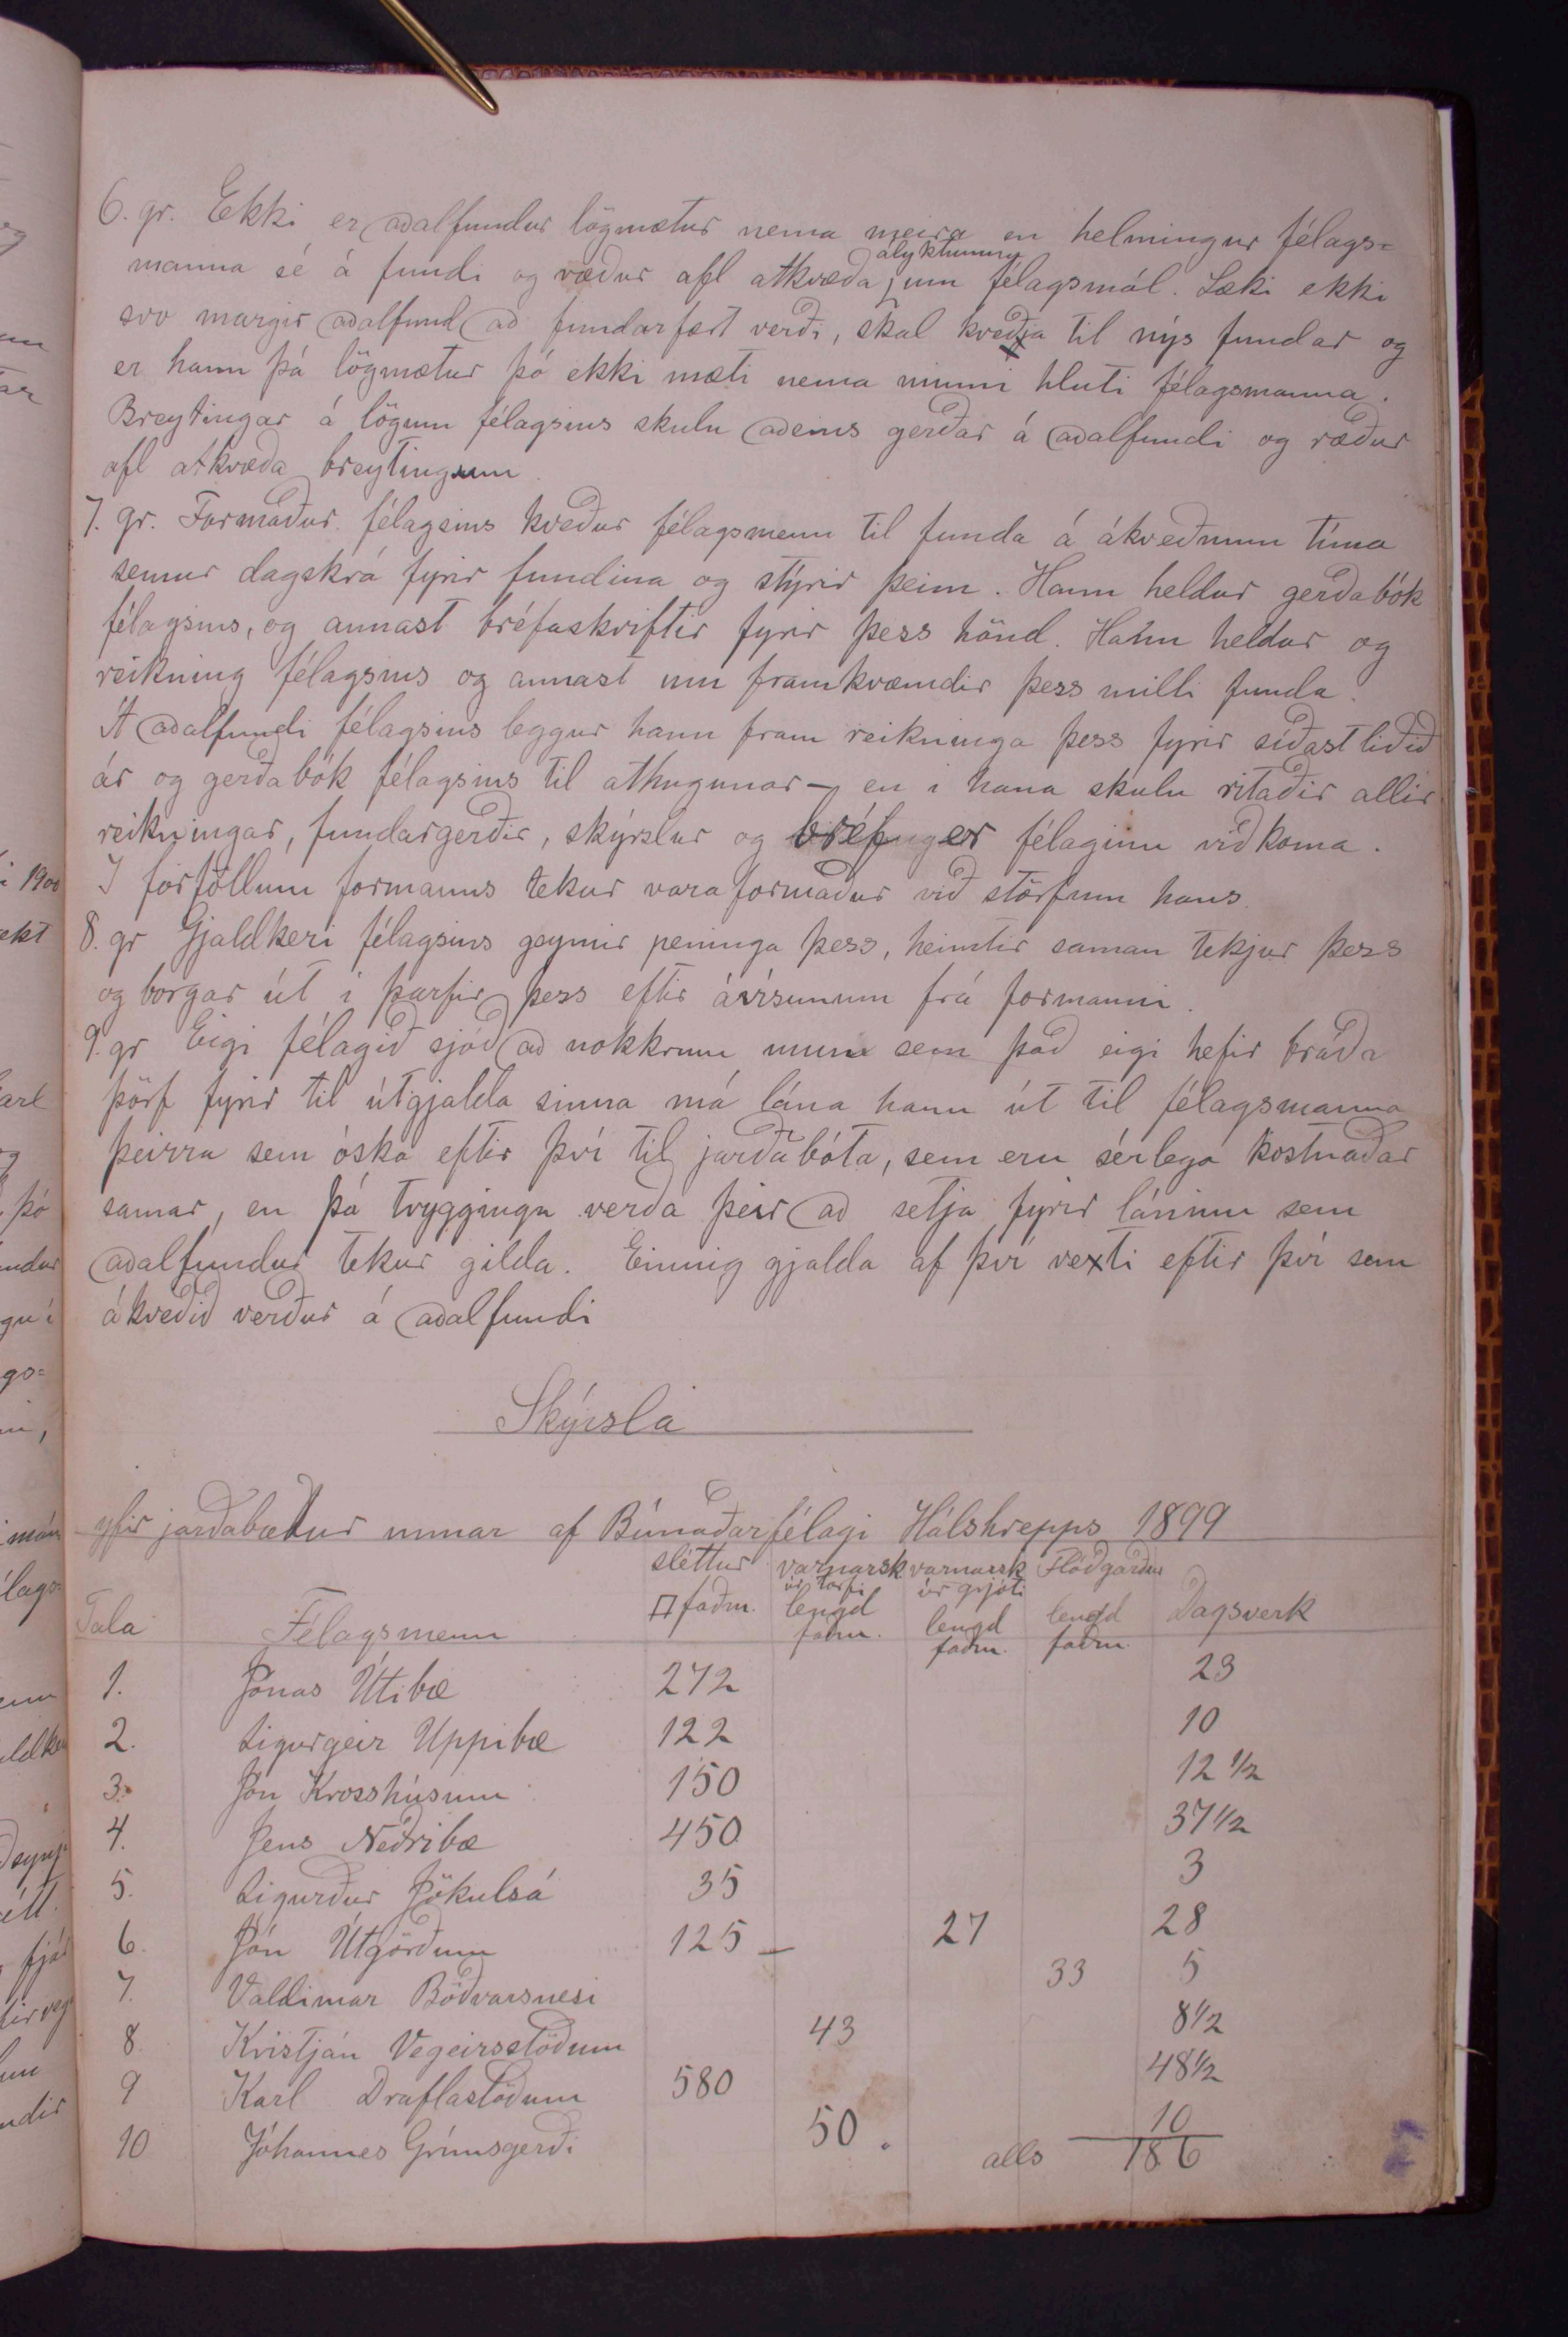 6. gr. Ekki er aðalfundur lögmætur nema meira en helmingur félags=
manna sé á fundi og ræður afl atkvæða ályktunum um félagsmál. Sæki ekki
svo margir aðalfund að fundarfært verði, skal kveðja til nýs fundar og
er hann þá lögmætur þó ekki mæti nema minni hluti félagsmanna.
Breytingar á lögum félagsins skulu aðeins gerðar á aðalfundi og ræður
afl atkvæða breytingum.
7. gr. Formaður félagsins kveður félagsmenn til funda á ákveðnum tíma
semur dagskrá fyrir fundina og stýrir þeim. Hann heldur gerðabók
félagsins, og annast bréfaskriftir fyrir þess hönd. Hann heldur og
reikning félagsins og annast um framkvæmdir þess milli funda.
Á aðalfundi félagsins leggur hann fram reikninga þess fyrir síðastliðið
ár og gerðabók félagsins til athugunar – en i hana skulu ritaðir allir
reikningar, fundargerðir, skýrslur og bréf er félaginu viðkoma.
I forföllum formanns tekur varaformaður við störfum hans.
8. gr Gjaldkeri félagsins geymir peninga þess, heimtir saman tekjur þess
og borgar út i þarfir þess eftir ávísunum frá formanni.
9. gr Eigi félagið sjóð að nokkrum mun sem það eigi hefir bráða
þörf fyrir til útgjalda sinna má lána hann út til félagsmanna
þeirra sem óska eftir því til jarðabóta, sem eru sérlega kostnaðar
samar, en þá tryggingu verða þeir að setja fyrir láninu sem
aðalfundur tekur gilda. Einnig gjalda af því vexti eftir því sem
ákveðið verður á aðalfundi
Skýrsla
yfir jarðabætur unnar af Búnaðarfélagi Hálshrepps 1899
Tala Félagsmenn sléttur □ faðm. varnarsk úr torfi lengd faðm. varnarsk úr grjóti lengd faðm. Flóðgarður lengd faðm. Dagsverk
1. Jónas Útibæ 272 23
2. Sigurgeir Uppibæ 122 10
3. Jón Krosshúsum 150 12 1/2
4. Jens Neðribæ 450 37 1/2
5. Sigurður Jökulsá 35 3
6. Jón Útgörðum 125 – 27 28
7. Valdimar Böðvarsnesi 33 5
8. Kristján Vegeirsstöðum 43 8 1/2
9 Karl Draflastöðum 580 48 1/2
10 Jóhannes Grímsgerði 50. 10
alls 186